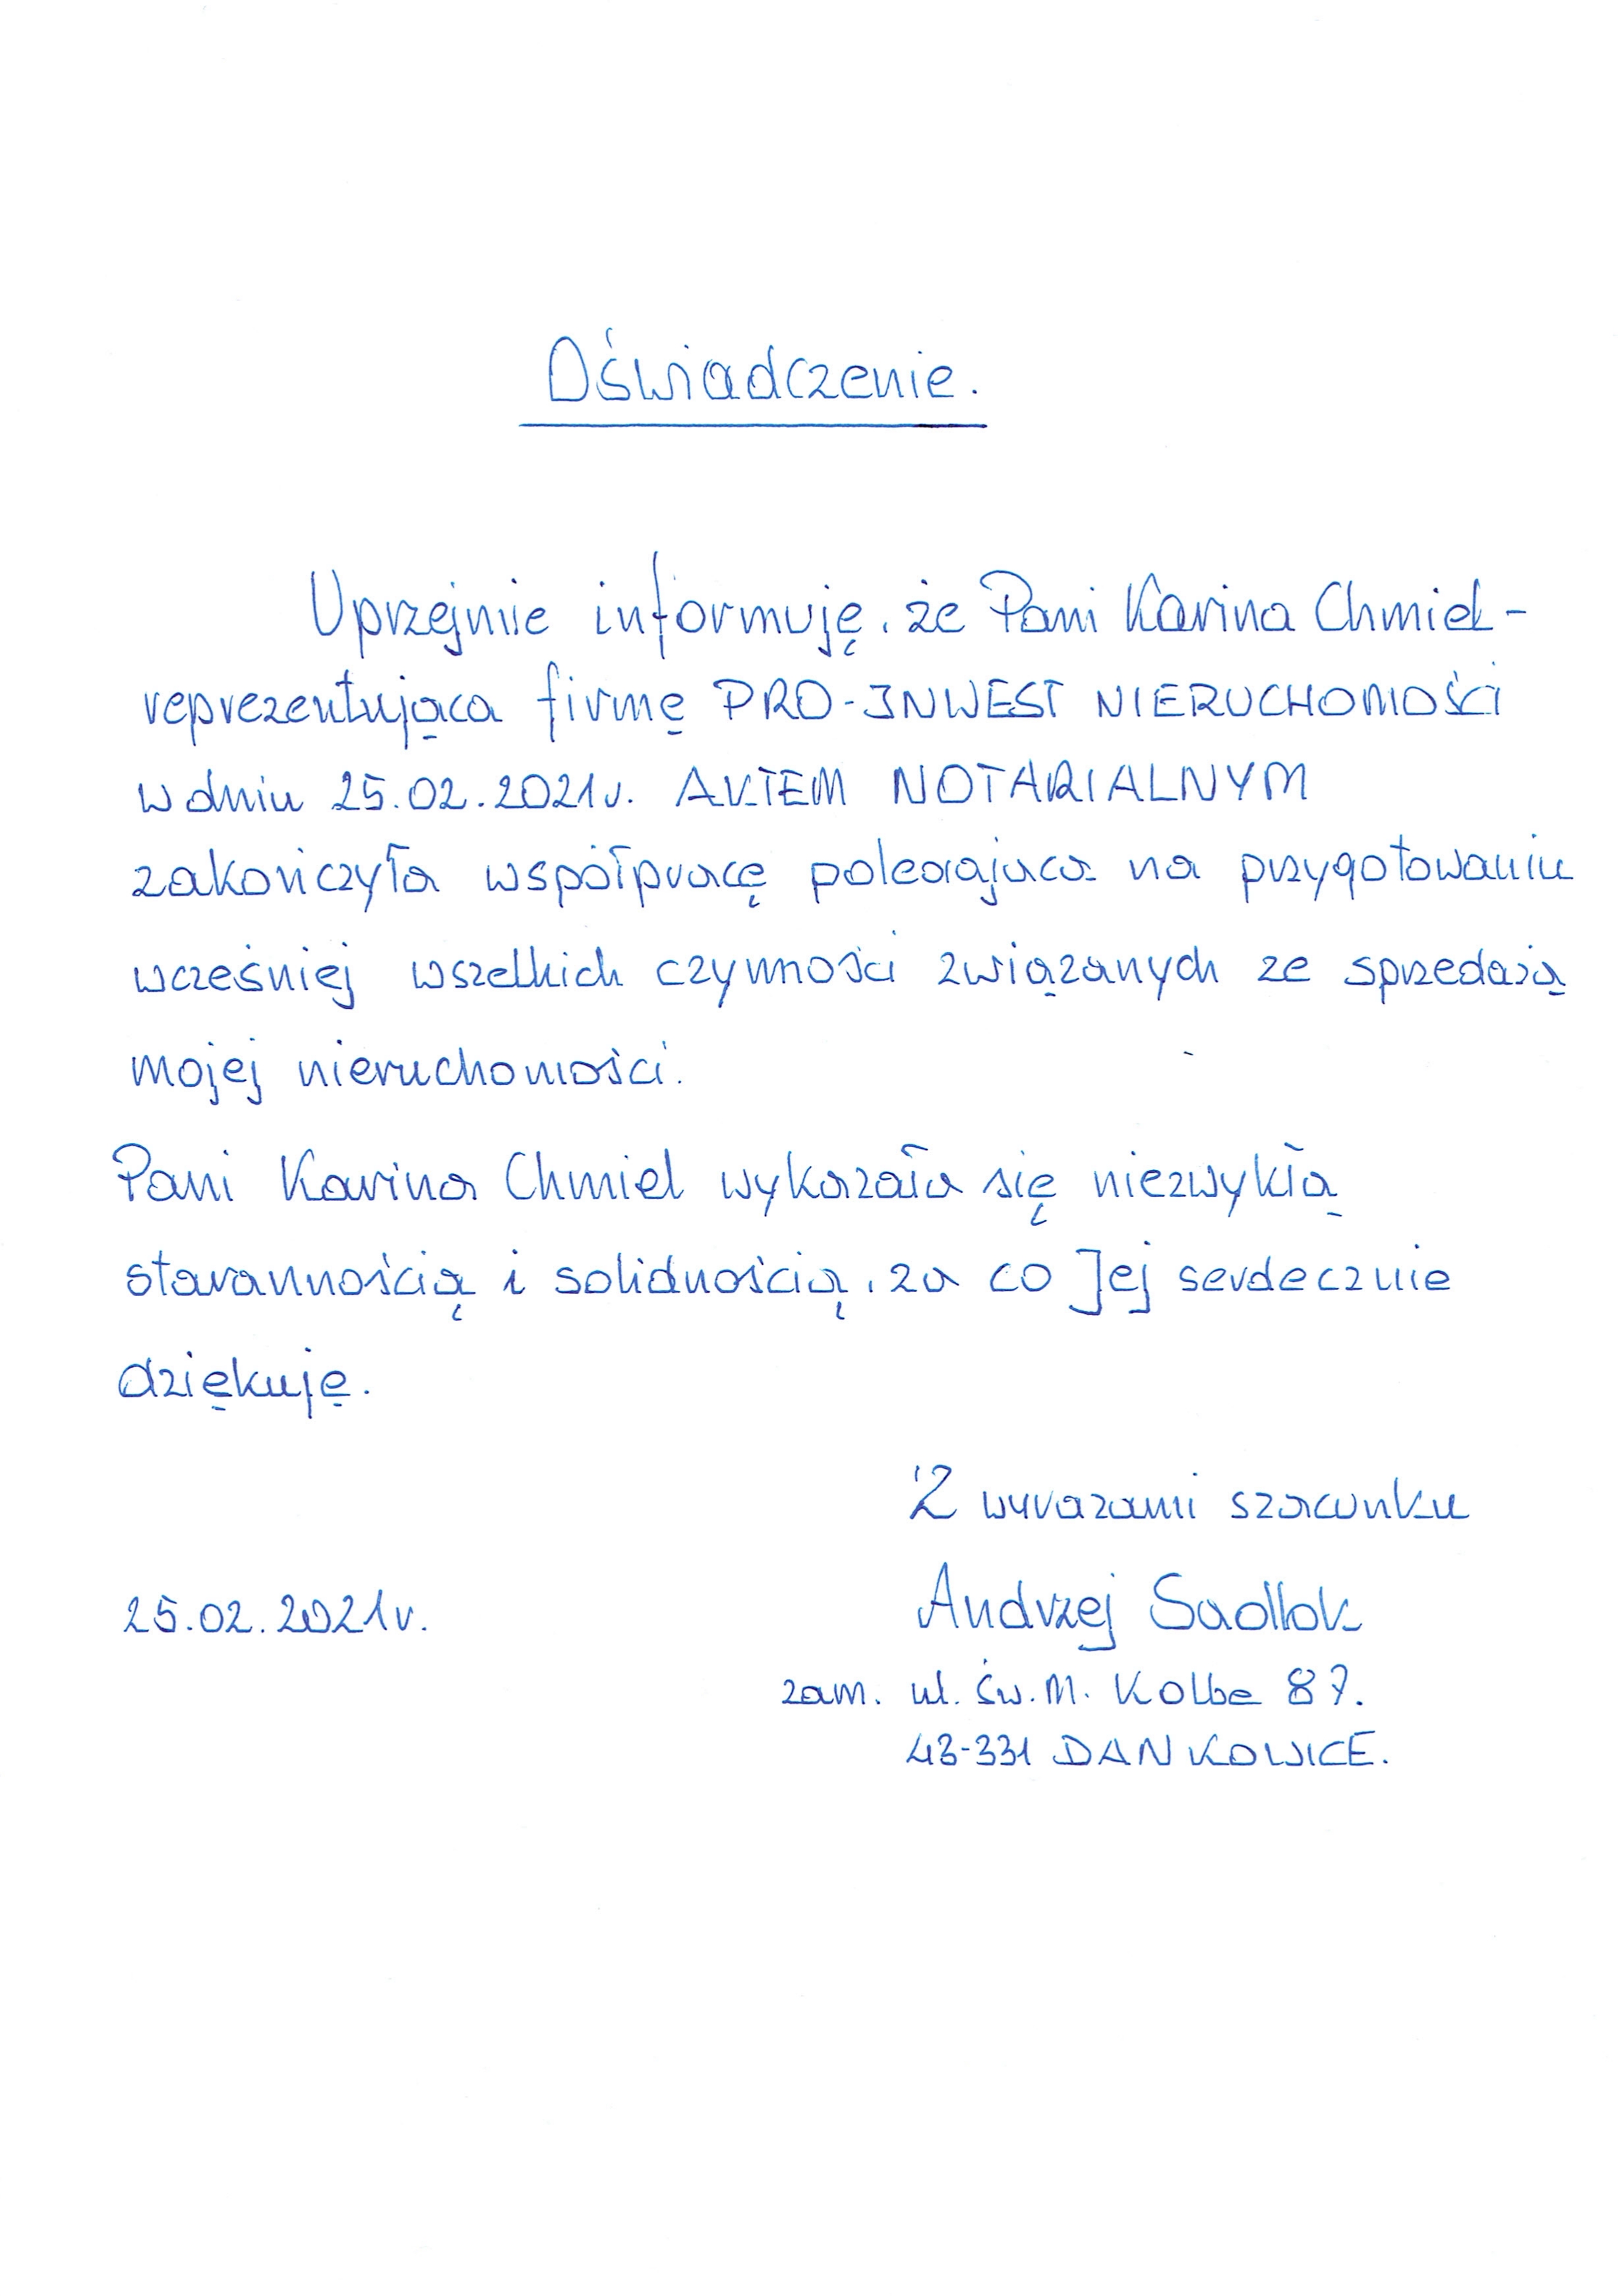 Oświadczenie.
Uprzejmie informuję, że Pani Karina Chmiel -
reprezentująca firmę PRO-INWEST NIERUCHOMOŚCI
w dniu 25.02.2021r. AKTEM NOTARIALNYM
zakończyła współpracę polegająca na przygotowaniu
wcześniej wszelkich czynności związanych ze sprzedażą
mojej nieruchomości.
Pani Karina Chmiel wykazała się niezwykłą
starannością i solidnością, za co Jej serdecznie
dziękuję.
Z wyrazami szacunku
25.02.2021r. Andrzej Sadlok
zam. ul. Św. M. Kolbe 87.
43-331 DANKOWICE.